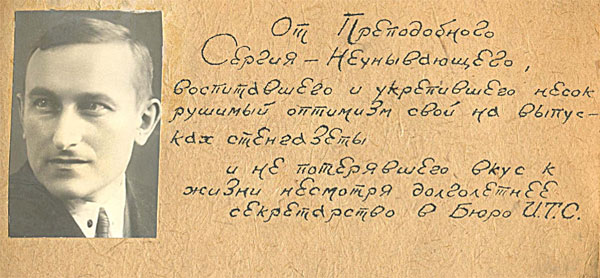 От Преподобного
Сергия – Неунывающего,
воспитавшего и укрепившего несок
рушимый оптимизм свой на выпус-
ках стенгазеты
и не потерявшего вкус к
жизни несмотря долголетнее
секретарство в Бюро И.Т.С.